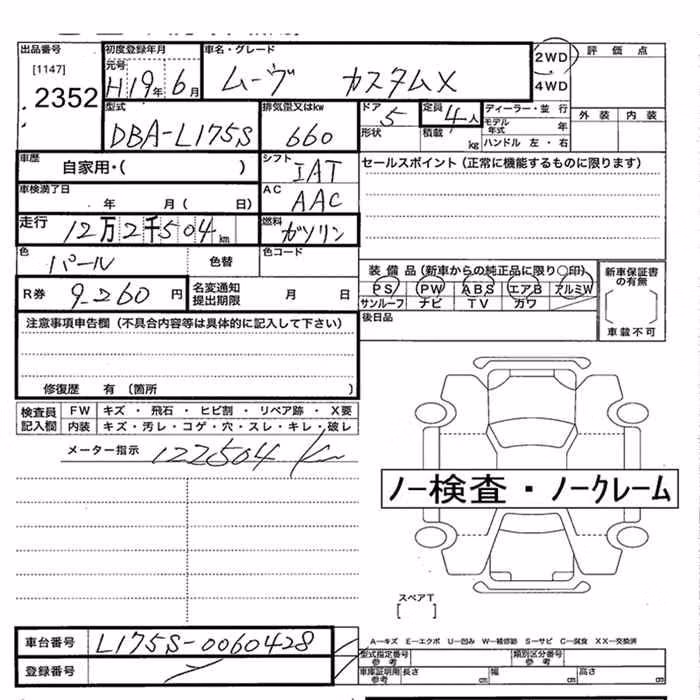 出品番号 初度登録年月 車名・グレード 2WD 評価点
[1147] 元号 H19年6月 ムーヴ カスタムX 4WD
2352 型式 排気量又はkw ドア 5 定員 4人 ディーラー・並行 外装 内装
DBA-L175S 660 形状 積載 kg モデル年式 年
ハンドル 左・右
車歴 自家用・( ) シフト IAT セールスポイント (正常に機能するものに限ります)
車検満了日 年 月( 日) AC AAC
走行 12万2千504km 燃料 ガソリン
色 パール 色替 色コード 装備品 (新車からの純正品に限り○印) 新車保証書の有無
R券 9260円 名変通知提出期限 月 日 PS PW ABS エアB アルミW
サンルーフ ナビ TV カワ
注意事項申告欄 (不具合内容等は具体的に記入して下さい) 後日品 車載不可
修復歴 有 (箇所 )
検査員記入欄 FW キズ・飛石・ヒビ割・リペア跡・X要
内装 キズ・汚レ・コゲ・穴・スレ・キレ・破レ
メーター指示 122504 Km
ノー検査・ノークレーム
スペアT
[ ]
車台番号 L175S-0060428 A―キズ E―エクボ U―凹み W―補修跡 S―サビ C―腐食 XX―交換済
登録番号 型式指定番号 参考 類別区分番号 参考
車庫証明用 参考 長さ cm 幅 cm 高さ cm